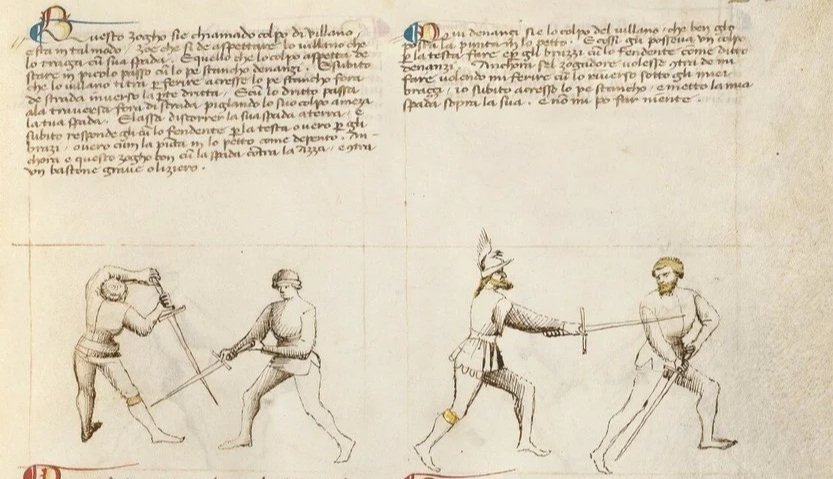 Questo zogho sie chiamado colpo di villano,
e sta in tal modo, zoe che si de aspettare lo villano che
lo traga cū sua spada. E quello che lo colpo aspetta de
stare in picolo passo cū lo pe stancho denanzi. E subito
che lo villano ti tra p ferire acresse lo pe stancho fora
de strada inverso la pte dritta. E cū lo dritto passa
ala traversa fora di strada pigliando lo suo colpo a meza
la tua spada. E lassa discorrer la sua spada a terra, e
subito responde gli cū lo fendente p la testa overo p gli
brazi, overo cū la punta in lo petto come depento. An-
chora e questo zogho bon cū la spada cōtra la azza, e cōtra
un bastone grave o liziero.
Qui denanzi sie lo colpo del villano, che ben glo
posta la punta in lo petto. E cossi gli posseva un colpo
p la testa fare e p gli brazzi cū lo fendente come ditto
denanzi. Anchora sel zugadore volesse cōtra de mi
fare volendo mi ferire cū lo riverso sotto gli miei
brazzi, io subito acresso lo pe stancho, e metto la mia
spada sopra la sua. E nō mi po far niente.